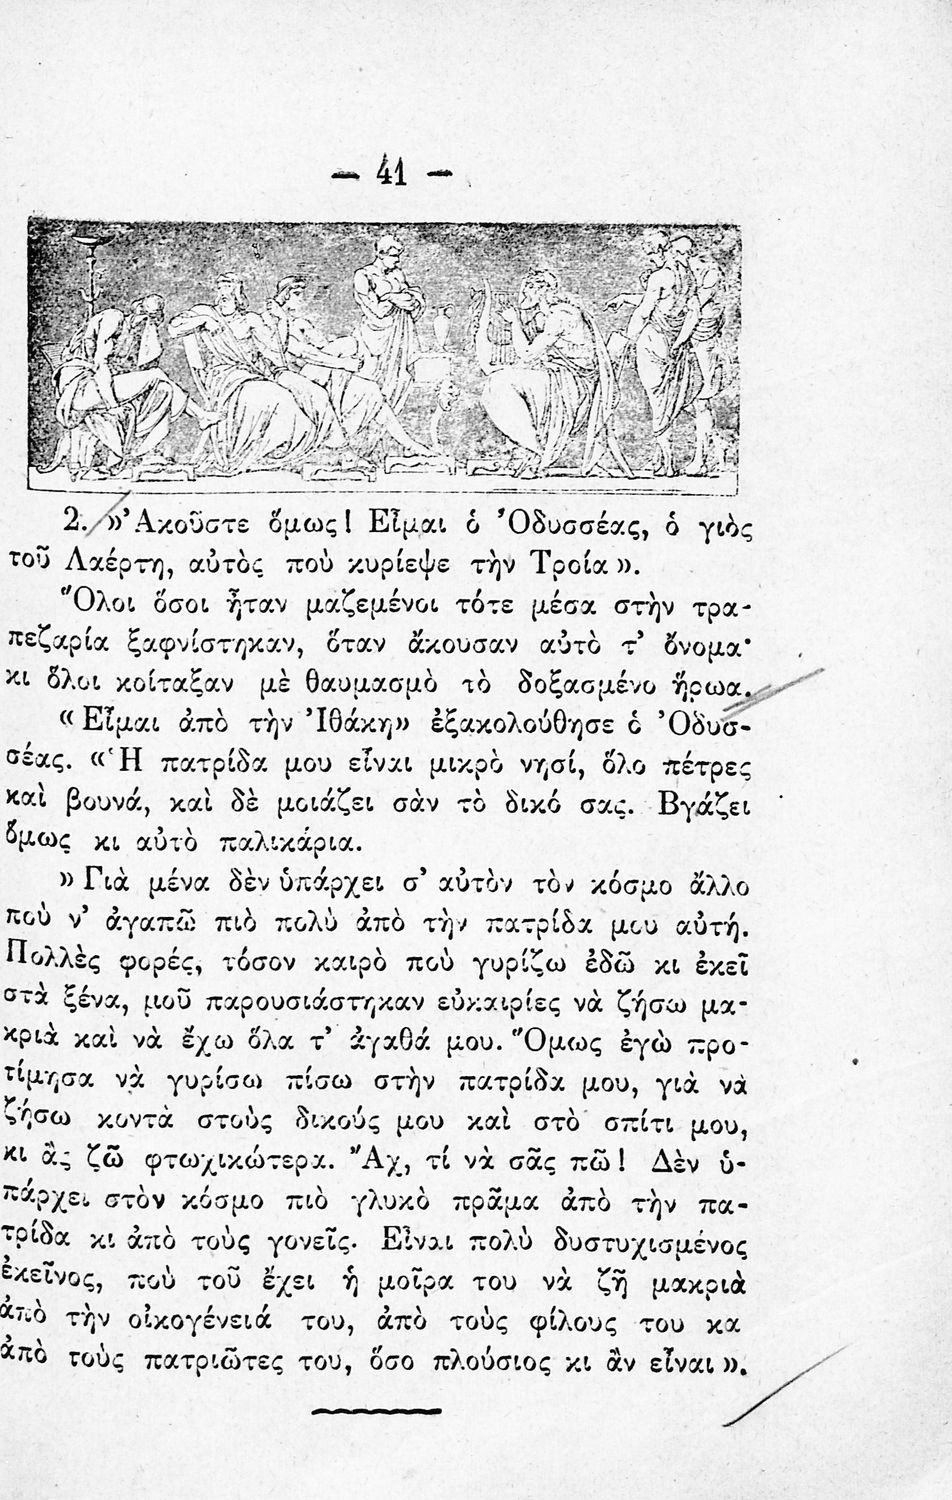 — 41 —
2. »Ἀκοῦστε ὅμως! Εἶμαι ὁ Ὀδυσσέας, ὁ γιὸς
τοῦ Λαέρτη, αὐτὸς ποὺ κυρίεψε τὴν Τροία».
Ὅλοι ὅσοι ἦταν μαζεμένοι τότε μέσα στὴν τρα-
πεζαρία ξαφνίστηκαν, ὅταν ἄκουσαν αὐτὸ τ’ ὄνομα·
κι ὅλοι κοίταξαν μὲ θαυμασμὸ τὸ δοξασμένο ἥρωα.
«Εἶμαι ἀπὸ τὴν Ἰθάκη» ἐξακολούθησε ὁ Ὀδυσ-
σέας. «Ἡ πατρίδα μου εἶναι μικρὸ νησί, ὅλο πέτρες
καὶ βουνά, καὶ δὲ μοιάζει σὰν τὸ δικό σας. Βγάζει
ὅμως κι αὐτὸ παλικάρια.
»Γιὰ μένα δὲν ὑπάρχει σ’ αὐτὸν τὸν κόσμο ἄλλο
ποὺ ν’ ἀγαπῶ πιὸ πολὺ ἀπὸ τὴν πατρίδα μου αὐτή.
Πολλὲς φορές, τόσον καιρὸ ποὺ γυρίζω ἐδῶ κι ἐκεῖ
στὰ ξένα, μοῦ παρουσιάστηκαν εὐκαιρίες νὰ ζήσω μα-
κριὰ καὶ νὰ ἔχω ὅλα τ’ ἀγαθά μου. Ὅμως ἐγὼ προ-
τίμησα νὰ γυρίσω πίσω στὴν πατρίδα μου, γιὰ νὰ
ζήσω κοντὰ στοὺς δικούς μου καὶ στὸ σπίτι μου,
κι ἂς ζῶ φτωχικώτερα. Ἄχ, τί νὰ σᾶς πῶ! Δὲν ὑ-
πάρχει στὸν κόσμο πιὸ γλυκὸ πρᾶμα ἀπὸ τὴν πα-
τρίδα κι ἀπὸ τοὺς γονεῖς. Εἶναι πολὺ δυστυχισμένος
ἐκεῖνος, ποὺ τοῦ ἔχει ἡ μοῖρα του νὰ ζῇ μακριὰ
ἀπὸ τὴν οἰκογένειά του, ἀπὸ τοὺς φίλους του κα
ἀπὸ τοὺς πατριῶτες του, ὅσο πλούσιος κι ἂν εἶναι».